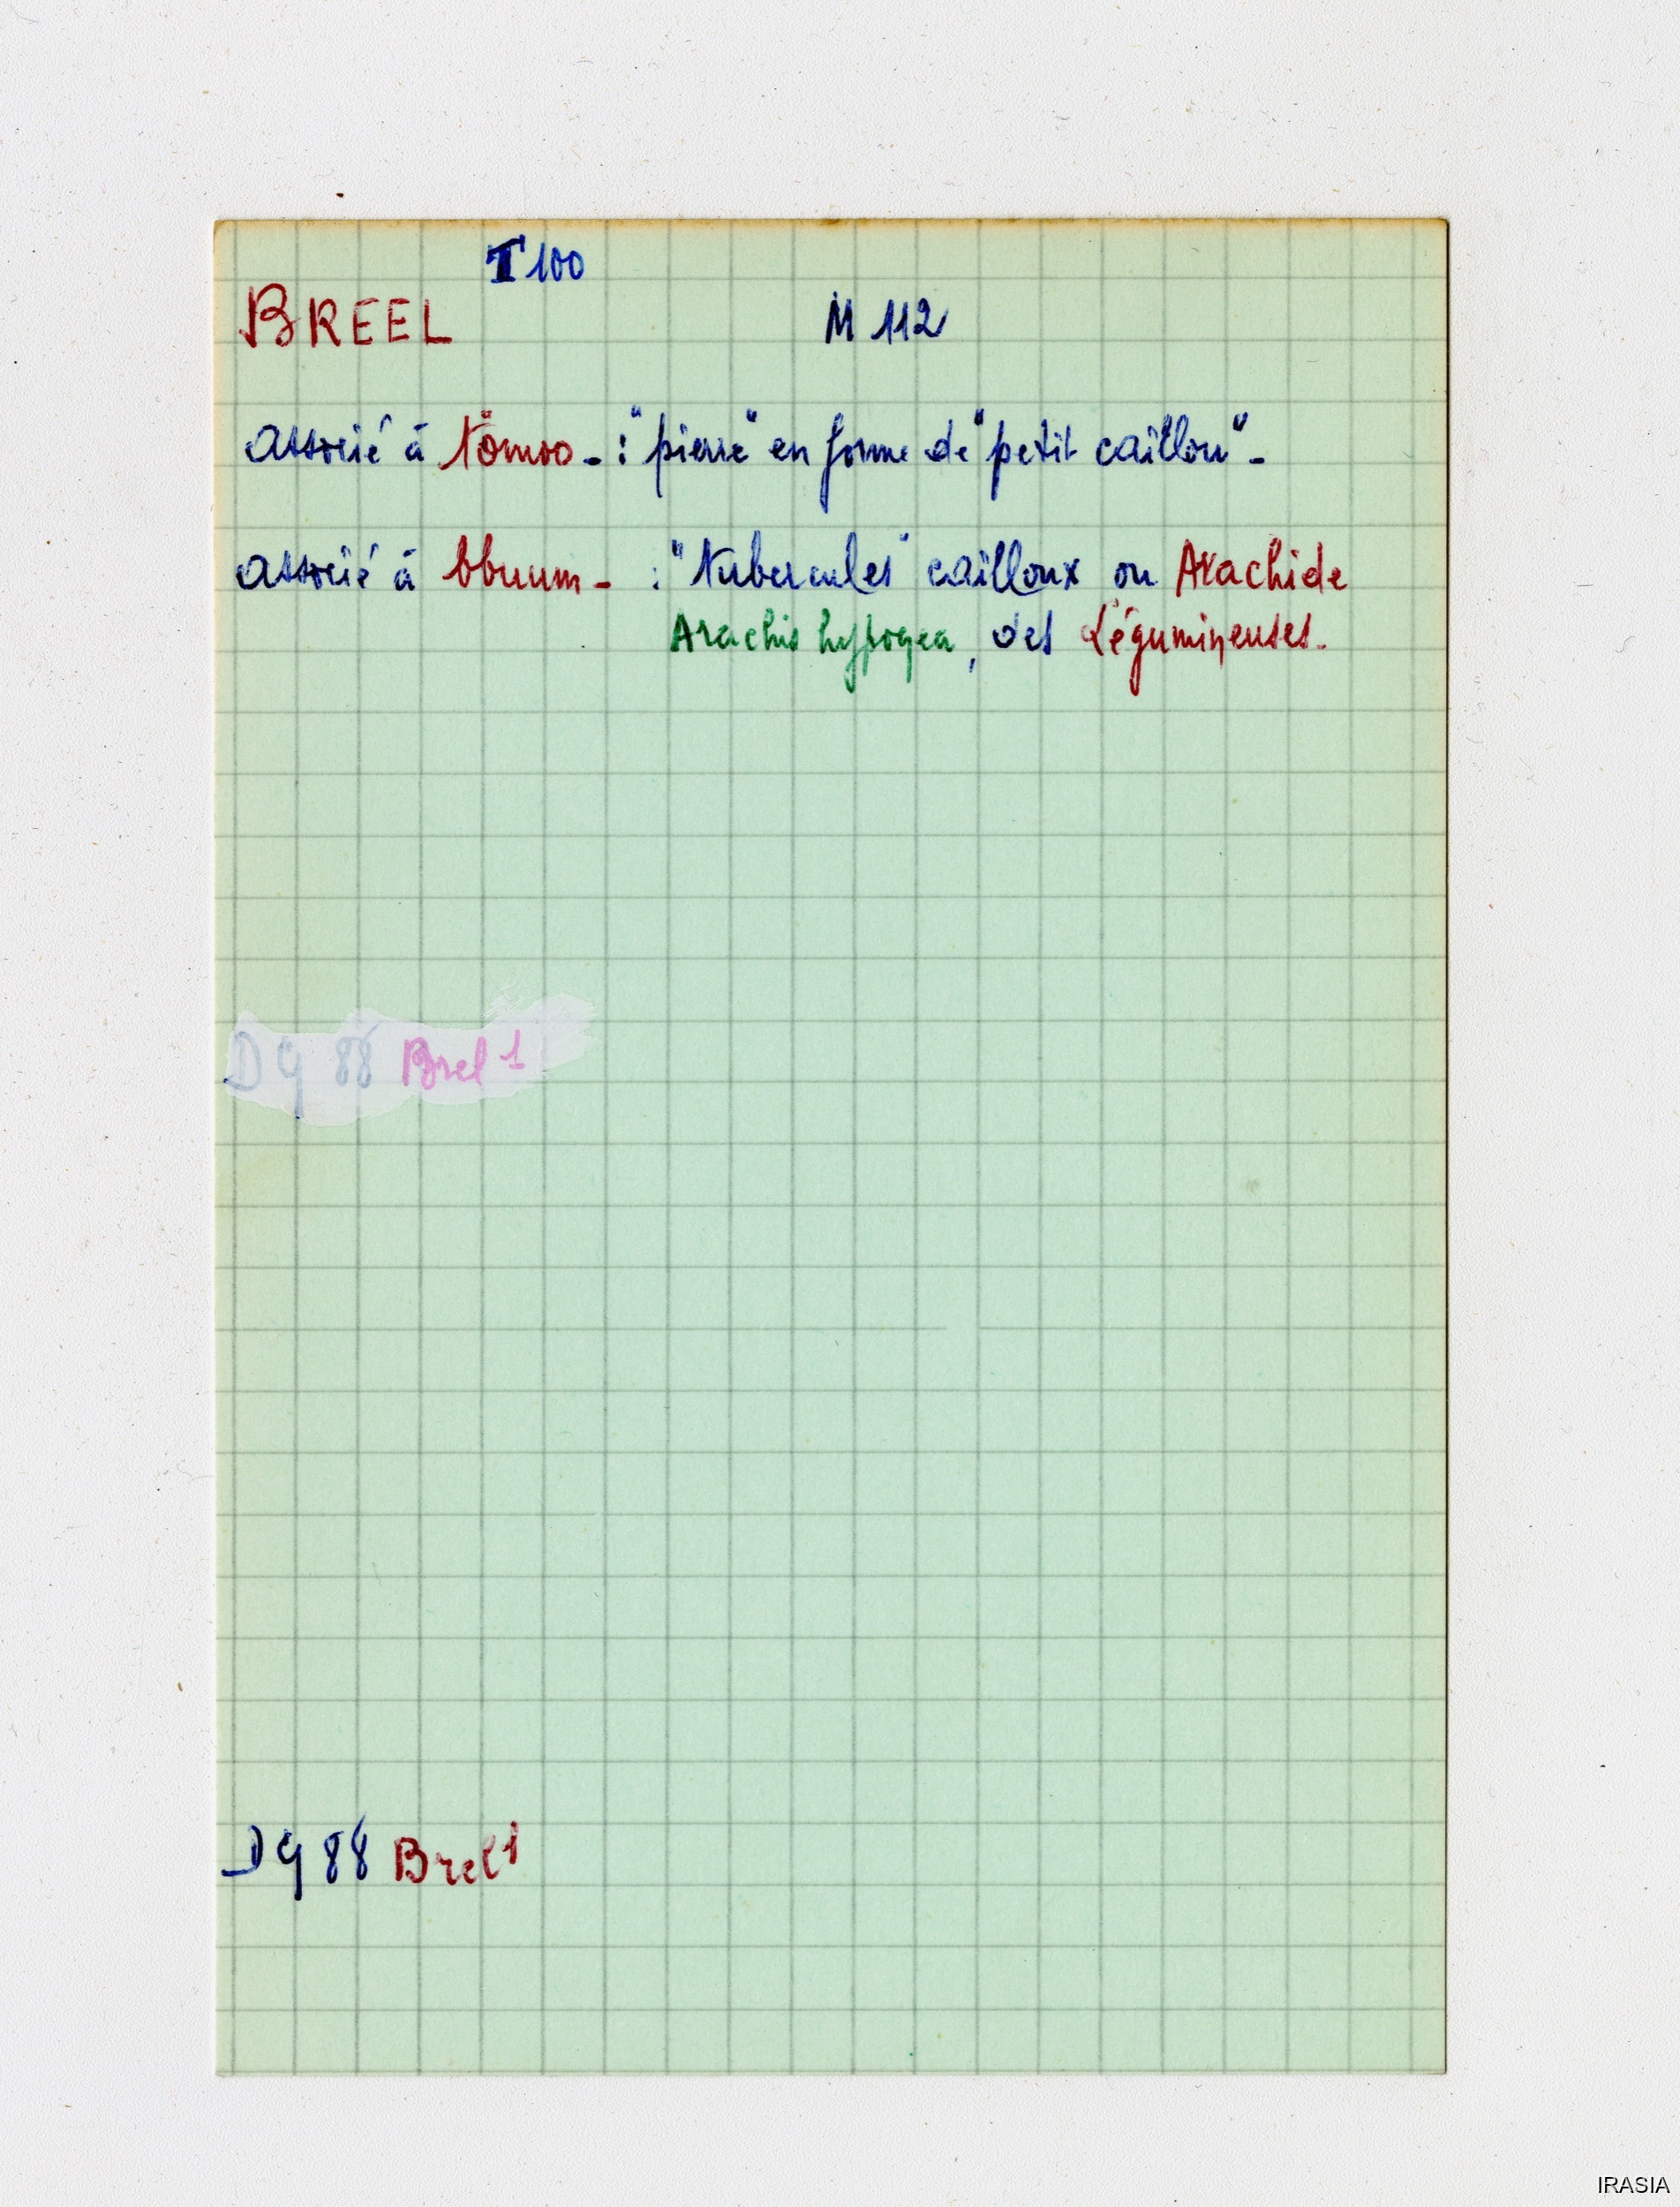 T 100
BREEL M 112
Associé à tömoo - : "pierre" en forme de "petit caillou" -
Associé à bbuum - : "tubercules" cailloux ou Arachide
Arachis hypogea, des Légumineuses.
D G 88 Brel 1
D G 88 Brel 1
IRASIA